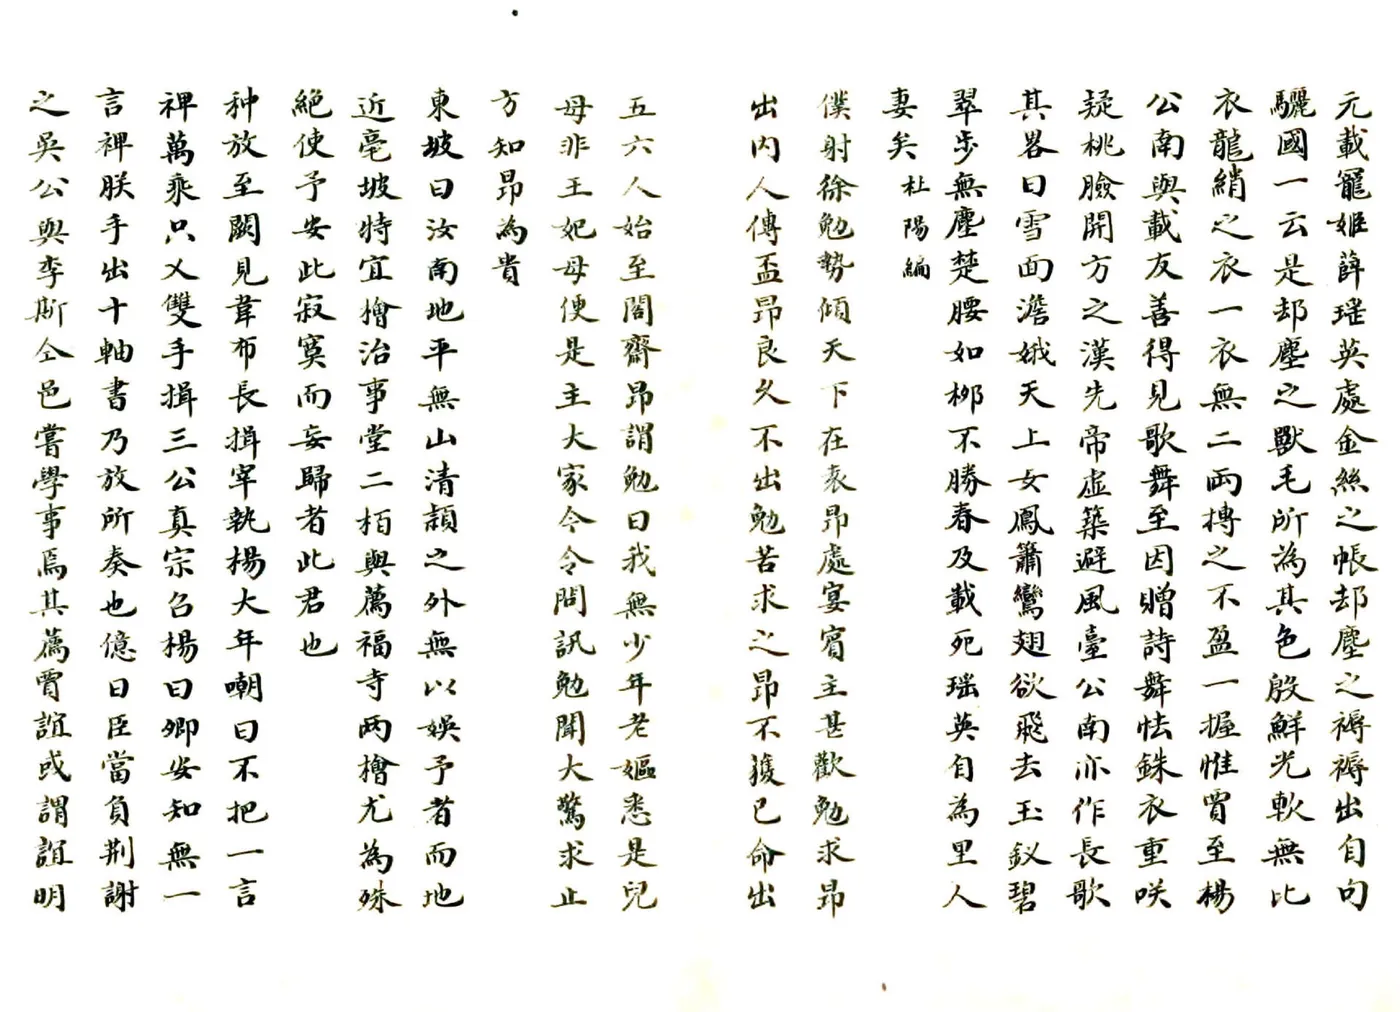 元載寵姬薛瑤英處金絲之帳却塵之褥褥出自句
驪國一云是却塵之獸毛所為其色殷鮮光軟無比
衣龍綃之衣一衣無二兩摶之不盈一握惟賈至楊
公南與載友善得見歌舞至因贈詩舞怯銖衣重咲
疑桃臉開方之漢先帝虛築避風臺公南亦作長歌
其畧曰雪面澹娥天上女鳳簫鸞翅欲飛去玉釵碧
翠步無塵楚腰如柳不勝春及載死瑤英自為里人
妻矣 杜陽編
僕射徐勉勢傾天下在袁昂處宴賓主甚歡勉求昂
出內人傳盃昂良久不出勉苦求之昂不獲已命出
五六人始至閤齋昂謂勉曰我無少年老嫗悉是兒
母非王妃母便是主大家今令問訊勉聞大驚求止
方知昂為貴
東坡曰汝南地平無山清潁之外無以娛予者而地
近亳坡特宜檜治事堂二栢與薦福寺两檜尤為殊
絕使予安此寂寞而妄歸者此君也
种放至闕見韋布長揖宰執楊大年嘲曰不把一言
裨萬乘只乂雙手揖三公真宗召楊曰卿安知無一
言裨朕手出十軸書乃放所奏也億曰臣當負荆謝
之吳公與李斯仝邑嘗學事焉其薦賈誼或謂誼明